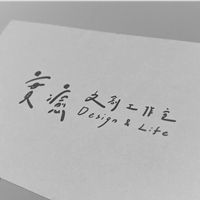 癒 文創工作室
Design & Life